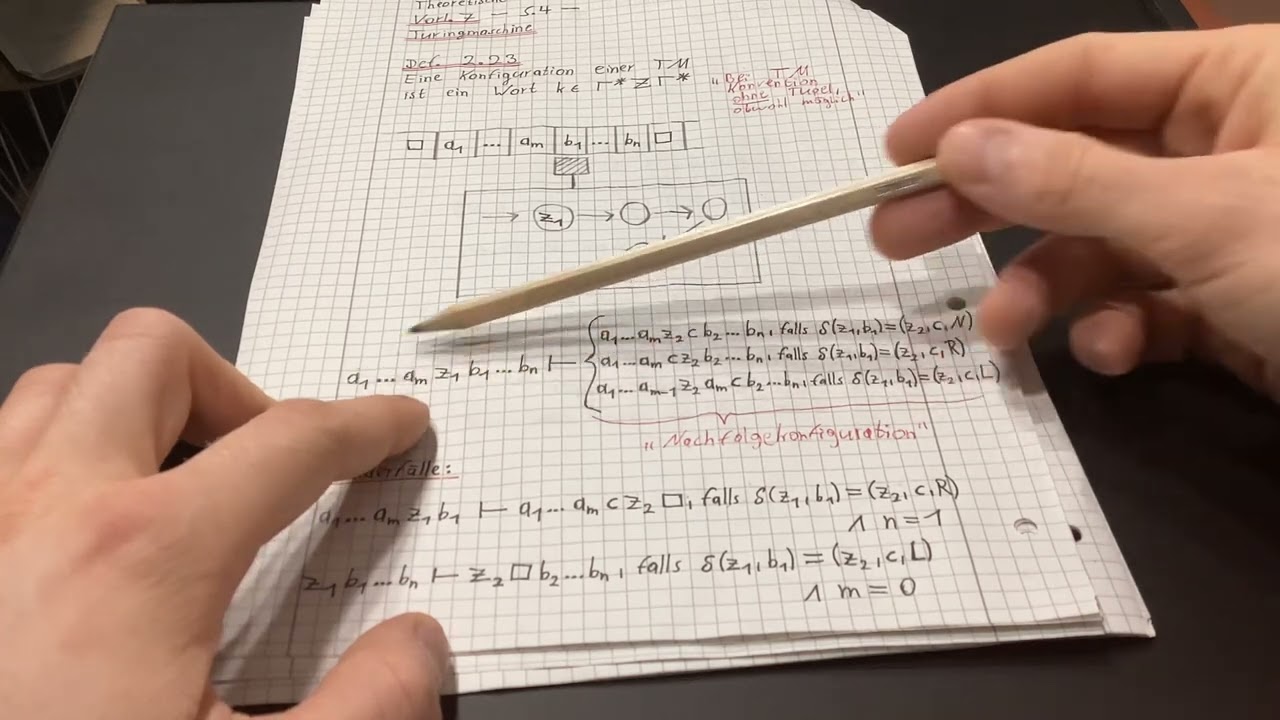 Theoretis
Vorl. 7 — S.4 —
Turingmaschine
Def. 2.23
Eine Konfiguration einer TM
ist ein Wort k ∈ Γ* Z Γ*
„Bei TM
Konvention
ohne Tupel,
obwohl möglich"
□ | a₁ | ... | aₘ | b₁ | ... | bₙ | □
z₁
a₁...aₘ z₁ b₁...bₙ ⊢
a₁...aₘ z₂ c b₂...bₙ, falls δ(z₁,b₁)=(z₂,c,N)
a₁...aₘ c z₂ b₂...bₙ, falls δ(z₁,b₁)=(z₂,c,R)
a₁...aₘ₋₁ z₂ aₘ c b₂...bₙ, falls δ(z₁,b₁)=(z₂,c,L)
„Nachfolgekonfiguration"
fälle:
a₁...aₘ z₁ b₁ ⊢ a₁...aₘ c z₂ □, falls δ(z₁,b₁)=(z₂,c,R)
∧ n=1
z₁ b₁...bₙ ⊢ z₂ □ b₂...bₙ, falls δ(z₁,b₁)=(z₂,c,L)
∧ m=0